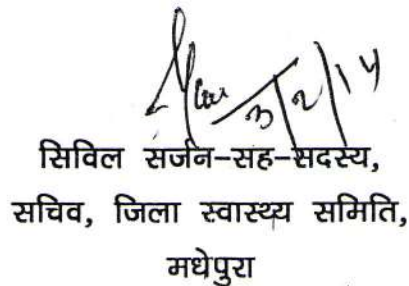 3/2/14
सिविल सर्जन-सह-सदस्य,
सचिव, जिला स्वास्थ्य समिति,
मधेपुरा